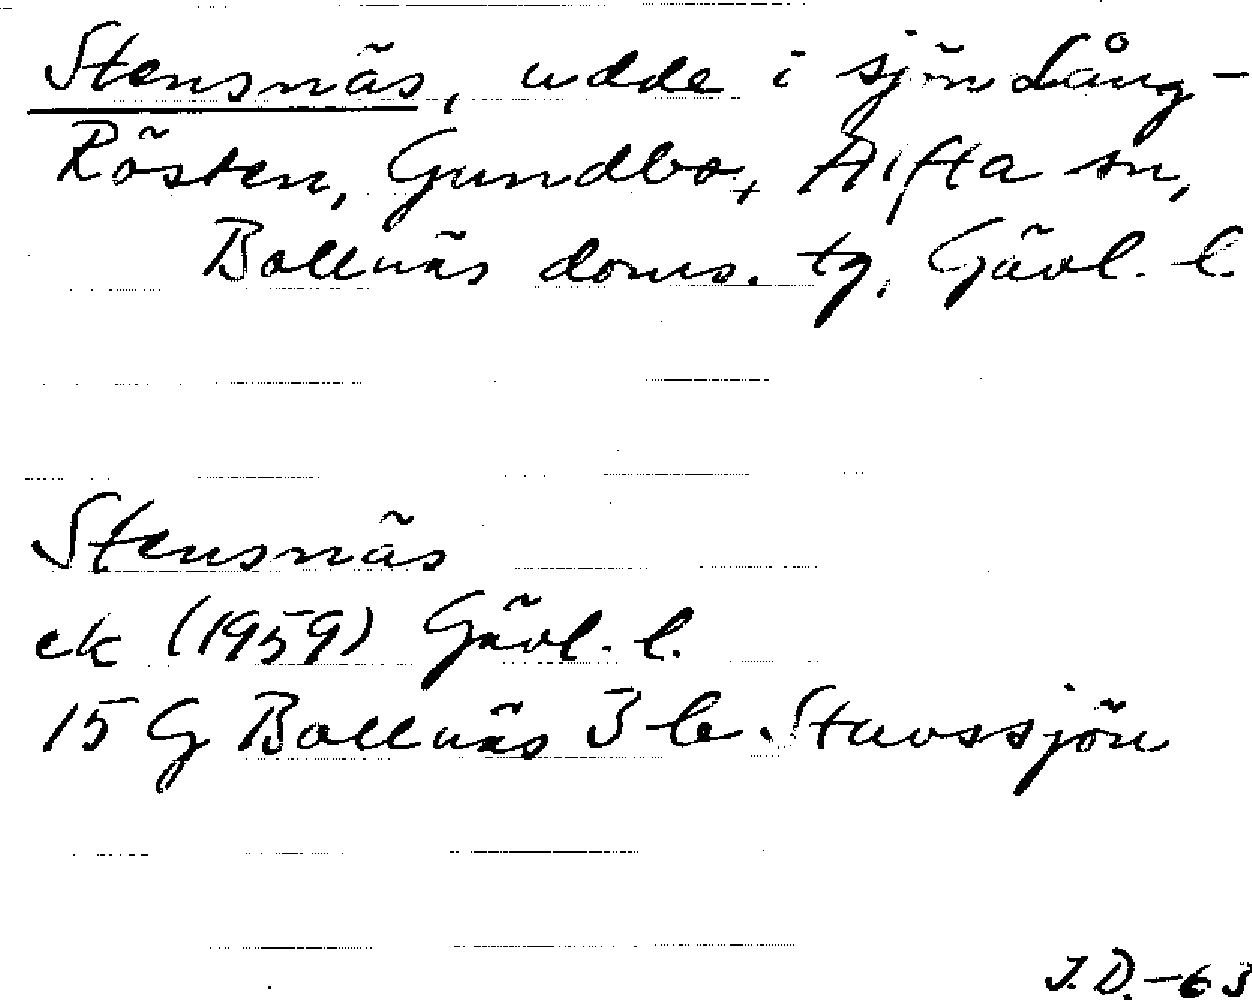 Stensnäs, udde i sjön Lång-
Rösten, Gundbo, Alfta sn,
Bollnäs doms. tg, Gävl. l.
Stensnäs
ek (1959) Gävl. l.
15 G Bollnäs 3 b. Stavssjön
J.D.-63